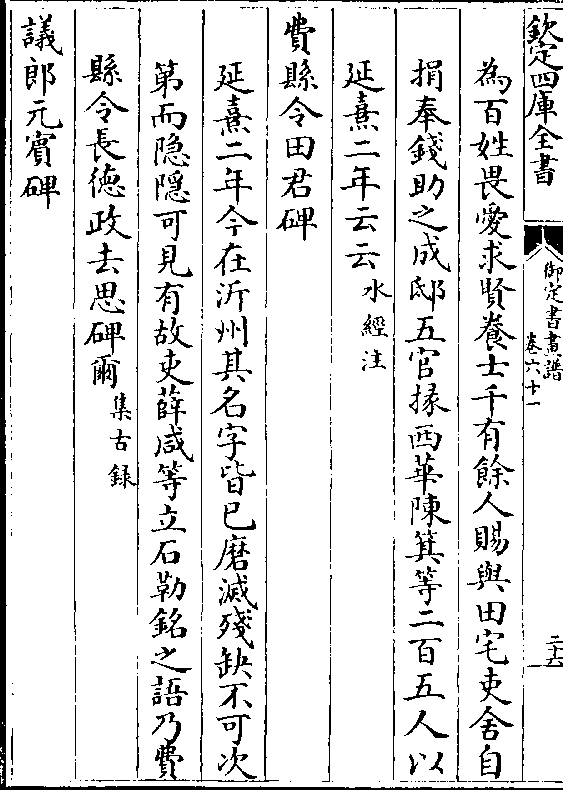 欽定四庫全書
御定書畫譜
卷六十一
二十六
為百姓畏愛求賢養士千有餘人賜與田宅吏舍自
捐奉錢助之成邸五官掾西華陳箕等二百五人以
延熹二年云云水經注
費縣令田君碑
延熹二年今在沂州其名字皆已磨滅殘缺不可次
第而隐隱可見有故吏薛咸等立石勒銘之語乃費
縣令長德政去思碑爾集古録
議郎元賓碑